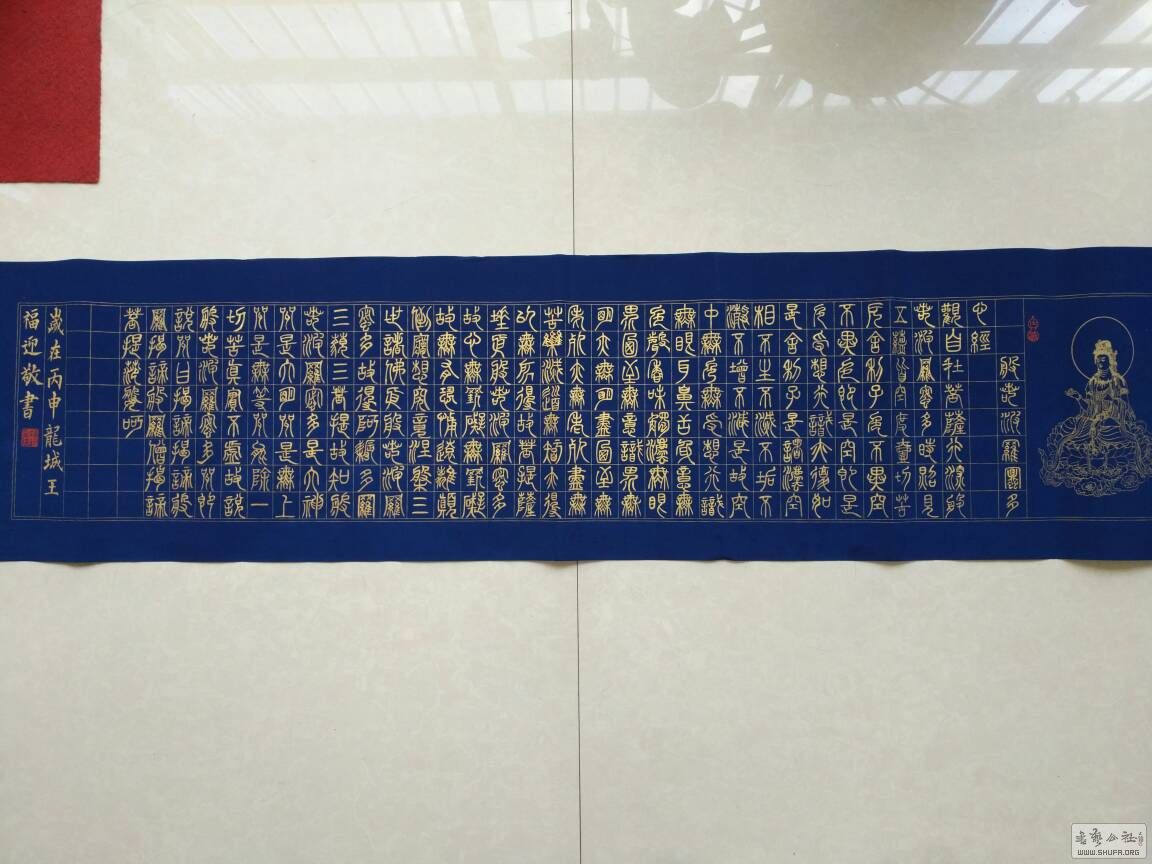 般若波羅蜜多
心經
觀自在菩薩行深般
若波羅蜜多時照見
五蘊皆空度壹切苦
厄舍利子色不異空
不異色即是空即是
色受想行識亦復如
是舍利子是諸法空
相不生不滅不垢不
淨不增不減是故空
中無色無受想行識
無眼耳鼻舌身意無
色聲香味觸法無眼
界乃至無意識界無
明亦無明盡乃至無
老死亦無老死盡無
苦集滅道無智亦得
以無所得故菩提薩
埵依般若波羅蜜多
故心無罣礙無罣礙
故無有恐怖遠離顛
倒夢想究竟涅槃三
世諸佛依般若波羅
蜜多故得阿耨多羅
三藐三菩提故知般
若波羅蜜多是大神
咒是大明咒是無上
咒是無等咒能除一
切苦真實不虛故說
般若波羅蜜多咒即
說咒曰揭諦揭諦般
羅揭諦般羅僧揭諦
菩提薩婆訶
歲在丙申龍城王
福迎敬書
WWW.SHUFA.ORG